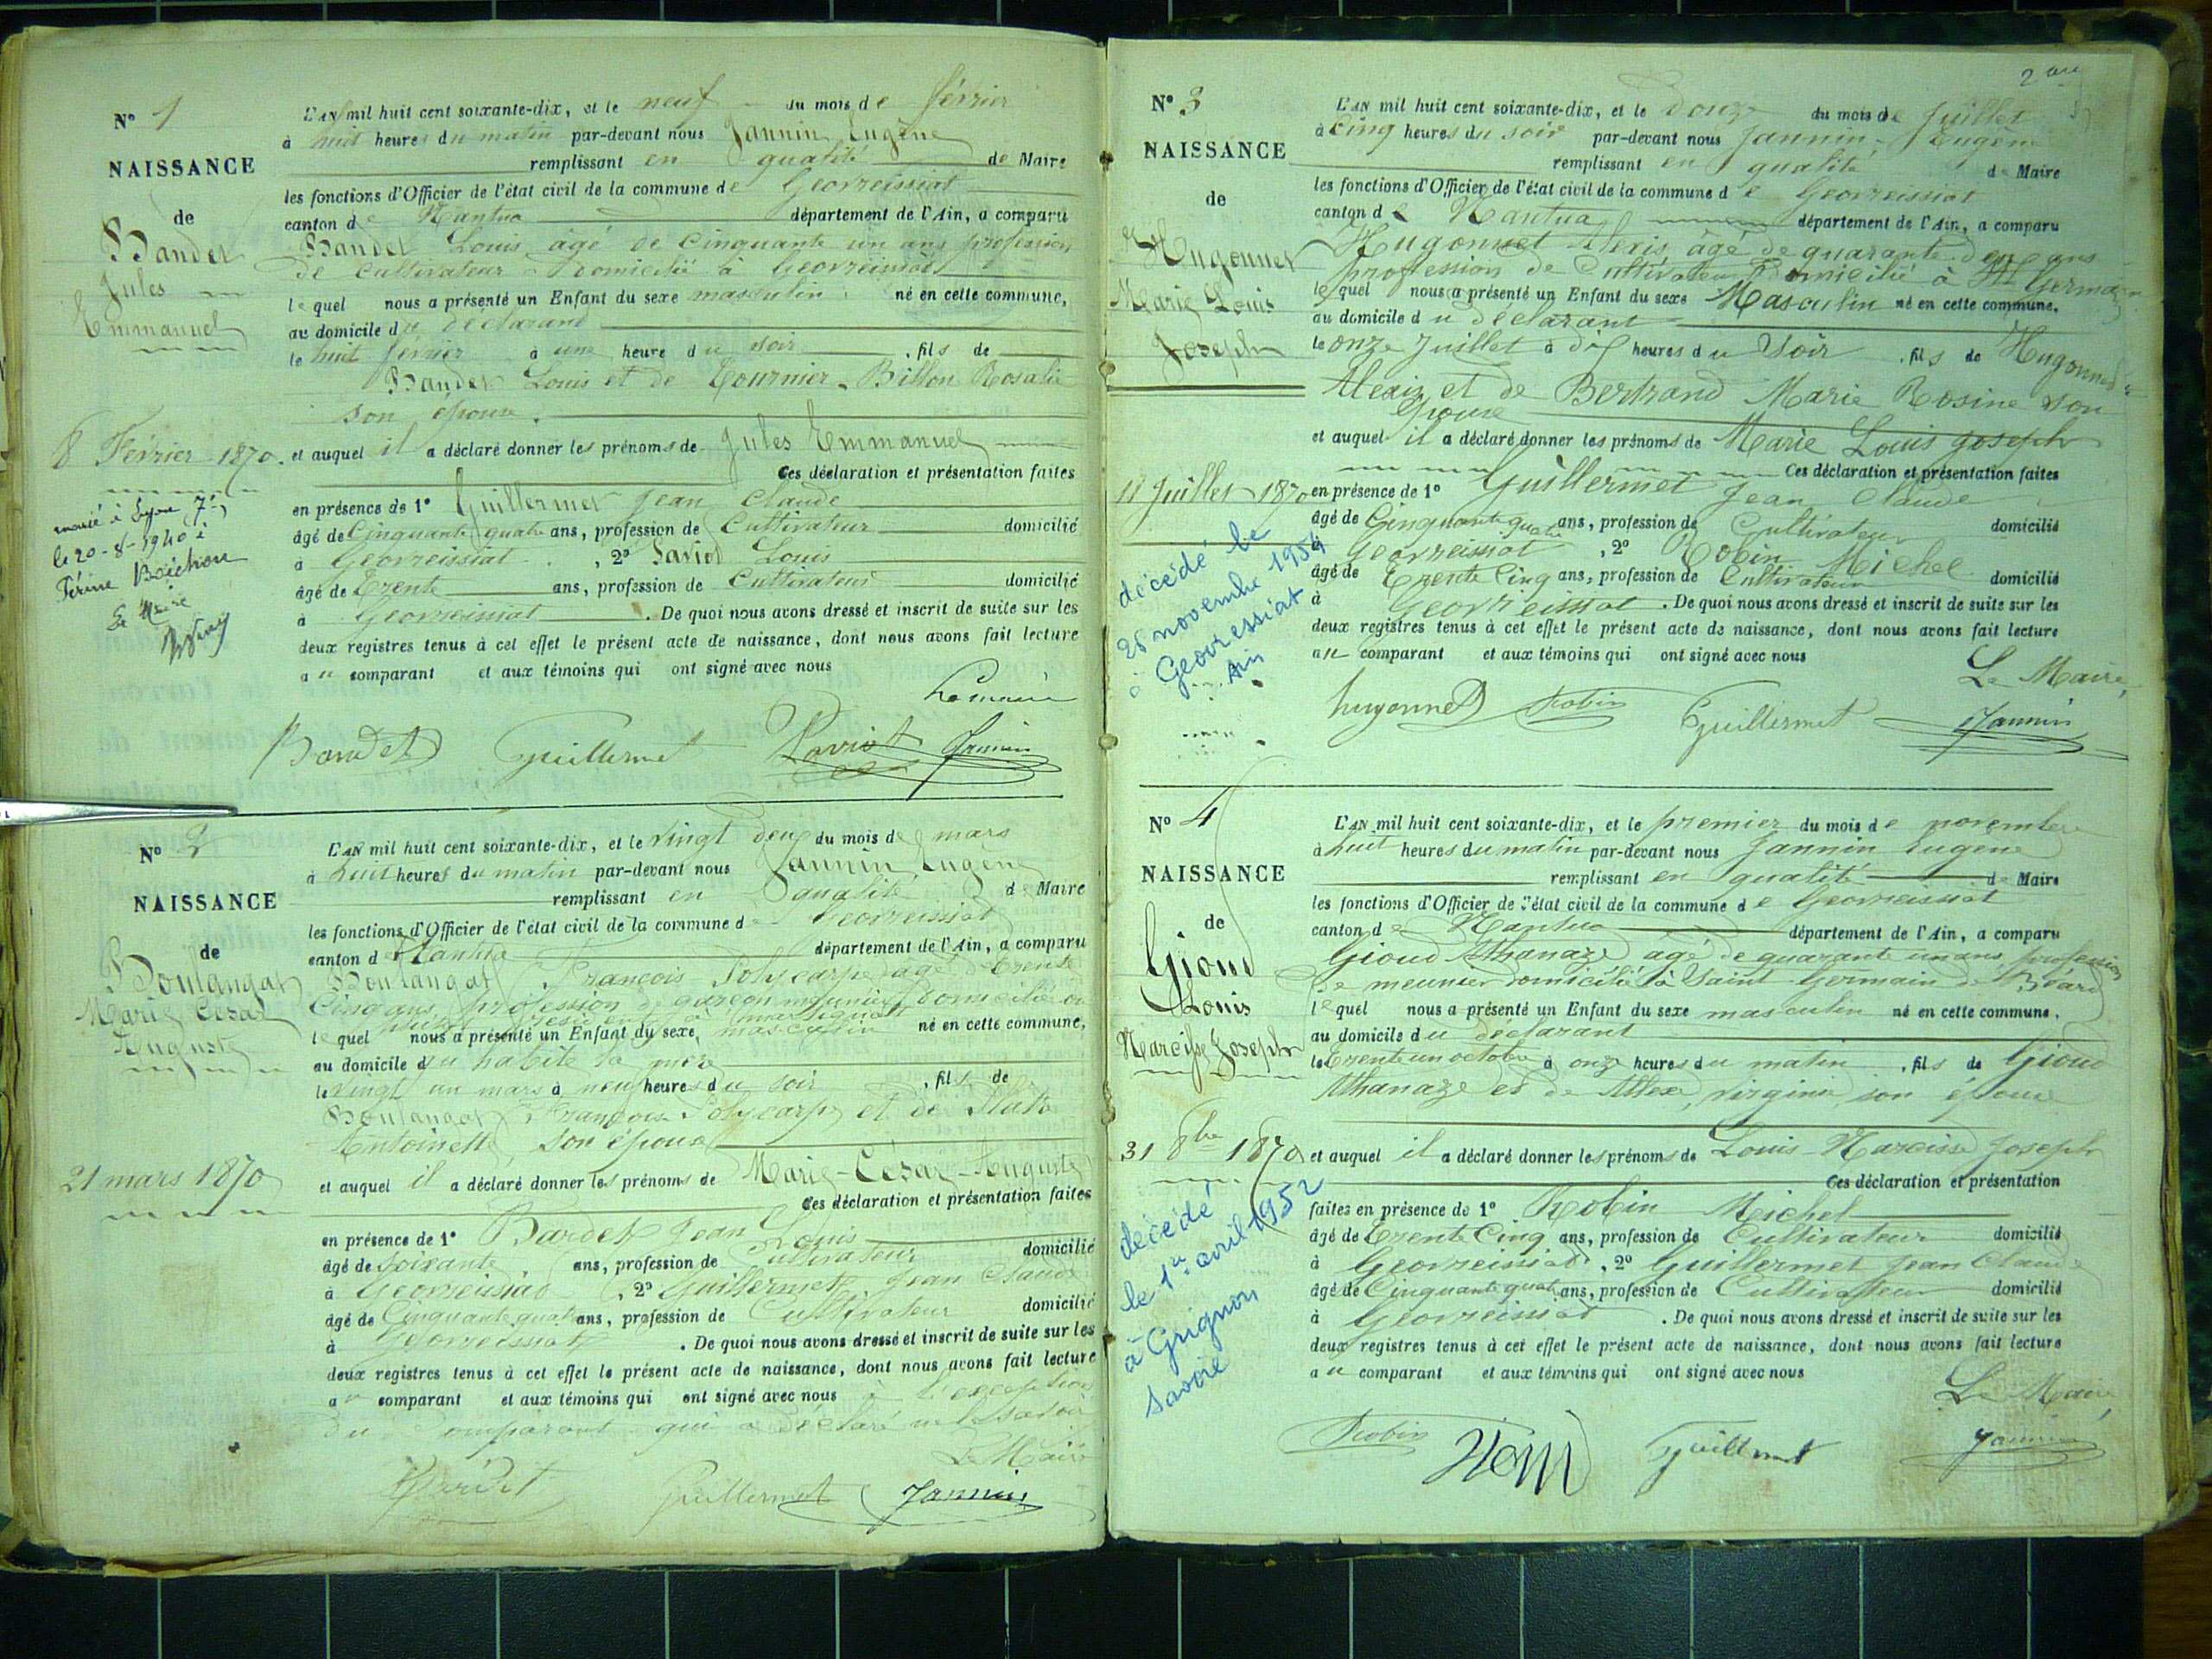 N° 1
NAISSANCE
de
Bandet
Jules
Emmanuel
8 Février 1870.
marié à Lyon 7e
le 20-8-1940 à
Périne Boichon
Le Maire
L'AN mil huit cent soixante-dix, et le neuf du mois de février
à huit heures du matin par-devant nous Jannin Eugène
remplissant en qualité de Maire
les fonctions d'Officier de l'état civil de la commune de Géovreissiat
canton de Nantua département de l'Ain, a comparu
Bandet Louis âgé de cinquante un ans profession
de cultivateur domicilié à Géovreissiat
lequel nous a présenté un Enfant du sexe masculin né en cette commune,
au domicile du déclarand
le huit février à une heure du soir, fils de
Bandet Louis et de Tournier-Billon Rosalie
son épouse.
et auquel il a déclaré donner les prénoms de Jules Emmanuel
Ces déclaration et présentation faites
en présence de 1° Guillermet Jean Claude
âgé de Cinquante quatre ans, profession de Cultivateur domicilié
à Géovreissiat, 2° Laviot Louis
âgé de Trente ans, profession de Cultivateur domicilié
à Géovreissiat. De quoi nous avons dressé et inscrit de suite sur les
deux registres tenus à cet effet le présent acte de naissance, dont nous avons fait lecture
au comparant et aux témoins qui ont signé avec nous
Le maire
Bandet Guillermet Laviot Jannin
N° 2
NAISSANCE
de
Boulangat
Marie César
Auguste
21 mars 1870
L'AN mil huit cent soixante-dix, et le vingt deux du mois de mars
à huit heures du matin par-devant nous Jannin Eugène
remplissant en qualité de Maire
les fonctions d'Officier de l'état civil de la commune de Géovreissiat
canton de Nantua département de l'Ain, a comparu
Boulangat François Polycarpe âgé de trente
Cinq ans, profession de garçon meunier domicilié
à martignat
lequel nous a présenté un Enfant du sexe masculin né en cette commune,
au domicile du habite la mère
le vingt un mars à neuf heures du soir, fils de
Boulangat François Polycarpe et de
Antoinette son épouse
et auquel il a déclaré donner les prénoms de Marie-César-Auguste
Ces déclaration et présentation faites
en présence de 1° Bardet Jean Louis
âgé de soixante ans, profession de Cultivateur domicilié
à Géovreissiat, 2° Guillermet Jean Claude
âgé de Cinquante quatre ans, profession de Cultivateur domicilié
à Géovreissiat. De quoi nous avons dressé et inscrit de suite sur les
deux registres tenus à cet effet le présent acte de naissance, dont nous avons fait lecture
au comparant et aux témoins qui ont signé avec nous à l'exception
du comparant qui a déclaré ne le savoir
Le Maire
Guillermet Jannin
N° 3
NAISSANCE
de
Hugonnet
Marie Louis
Joseph
11 Juillet 1870
décédé le
26 novembre 1954
à Geovressiat
Ain
L'AN mil huit cent soixante-dix, et le Douze du mois de Juillet
à Cinq heures du soir par-devant nous Jannin Eugène
remplissant en qualité de Maire
les fonctions d'Officier de l'état civil de la commune de Géovreissiat
canton de Nantua département de l'Ain, a comparu
Hugonnet Alexis âgé de quarante deux ans
profession de Cultivateur domicilié à St Germain
lequel nous a présenté un Enfant du sexe Masculin né en cette commune,
au domicile du déclarant
le onze Juillet à dix heures du Soir, fils de Hugonnet
Alexis et de Bertrand Marie Rosine son
Epouse
et auquel il a déclaré donner les prénoms de Marie Louis Joseph
Ces déclaration et présentation faites
en présence de 1° Guillermet Jean Claude
âgé de Cinquante quatre ans, profession de Cultivateur domicilié
à Géovreissiat, 2° Robin Michel
âgé de Trente Cinq ans, profession de Cultivateur domicilié
à Géovreissiat. De quoi nous avons dressé et inscrit de suite sur les
deux registres tenus à cet effet le présent acte de naissance, dont nous avons fait lecture
au comparant et aux témoins qui ont signé avec nous
Le Maire,
hugonnet Robin Guillermet Jannin
N° 4
NAISSANCE
de
Gioud
Louis
Narcisse Joseph
31 8bre 1870
décédé
le 1er avril 1952
à Grignon
Savoie
L'AN mil huit cent soixante-dix, et le premier du mois de novembre
à huit heures du matin par-devant nous Jannin Eugène
remplissant en qualité de Maire
les fonctions d'Officier de l'état civil de la commune de Géovreissiat
canton de Nantua département de l'Ain, a comparu
Gioud Athanaze âgé de quarante un ans profession
de meunier domicilié à Saint Germain de Béard
lequel nous a présenté un Enfant du sexe masculin né en cette commune,
au domicile du déclarant
le Trente un octobre à onze heures du matin, fils de Gioud
Athanaze et de Allex, Virginie son épouse
et auquel il a déclaré donner les prénoms de Louis-Narcisse Joseph
Ces déclaration et présentation
faites en présence de 1° Robin Michel
âgé de Trente Cinq ans, profession de Cultivateur domicilié
à Géovreissiat, 2° Guillermet Jean Claude
âgé de Cinquante quatre ans, profession de Cultivateur domicilié
à Géovreissiat. De quoi nous avons dressé et inscrit de suite sur les
deux registres tenus à cet effet le présent acte de naissance, dont nous avons fait lecture
au comparant et aux témoins qui ont signé avec nous
Le Maire,
Robin Guillermet Jannin